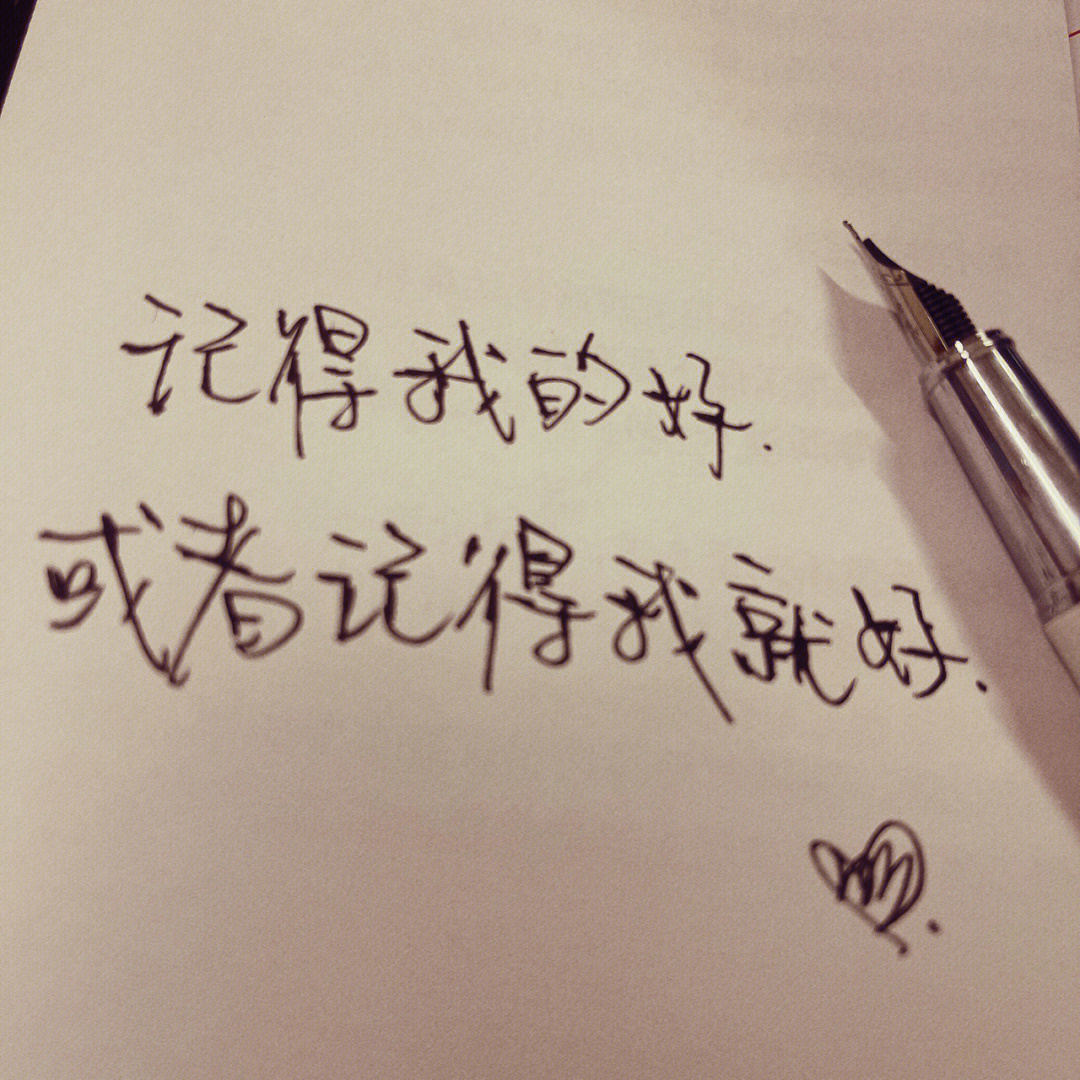 记得我的好.
或者记得我就好.